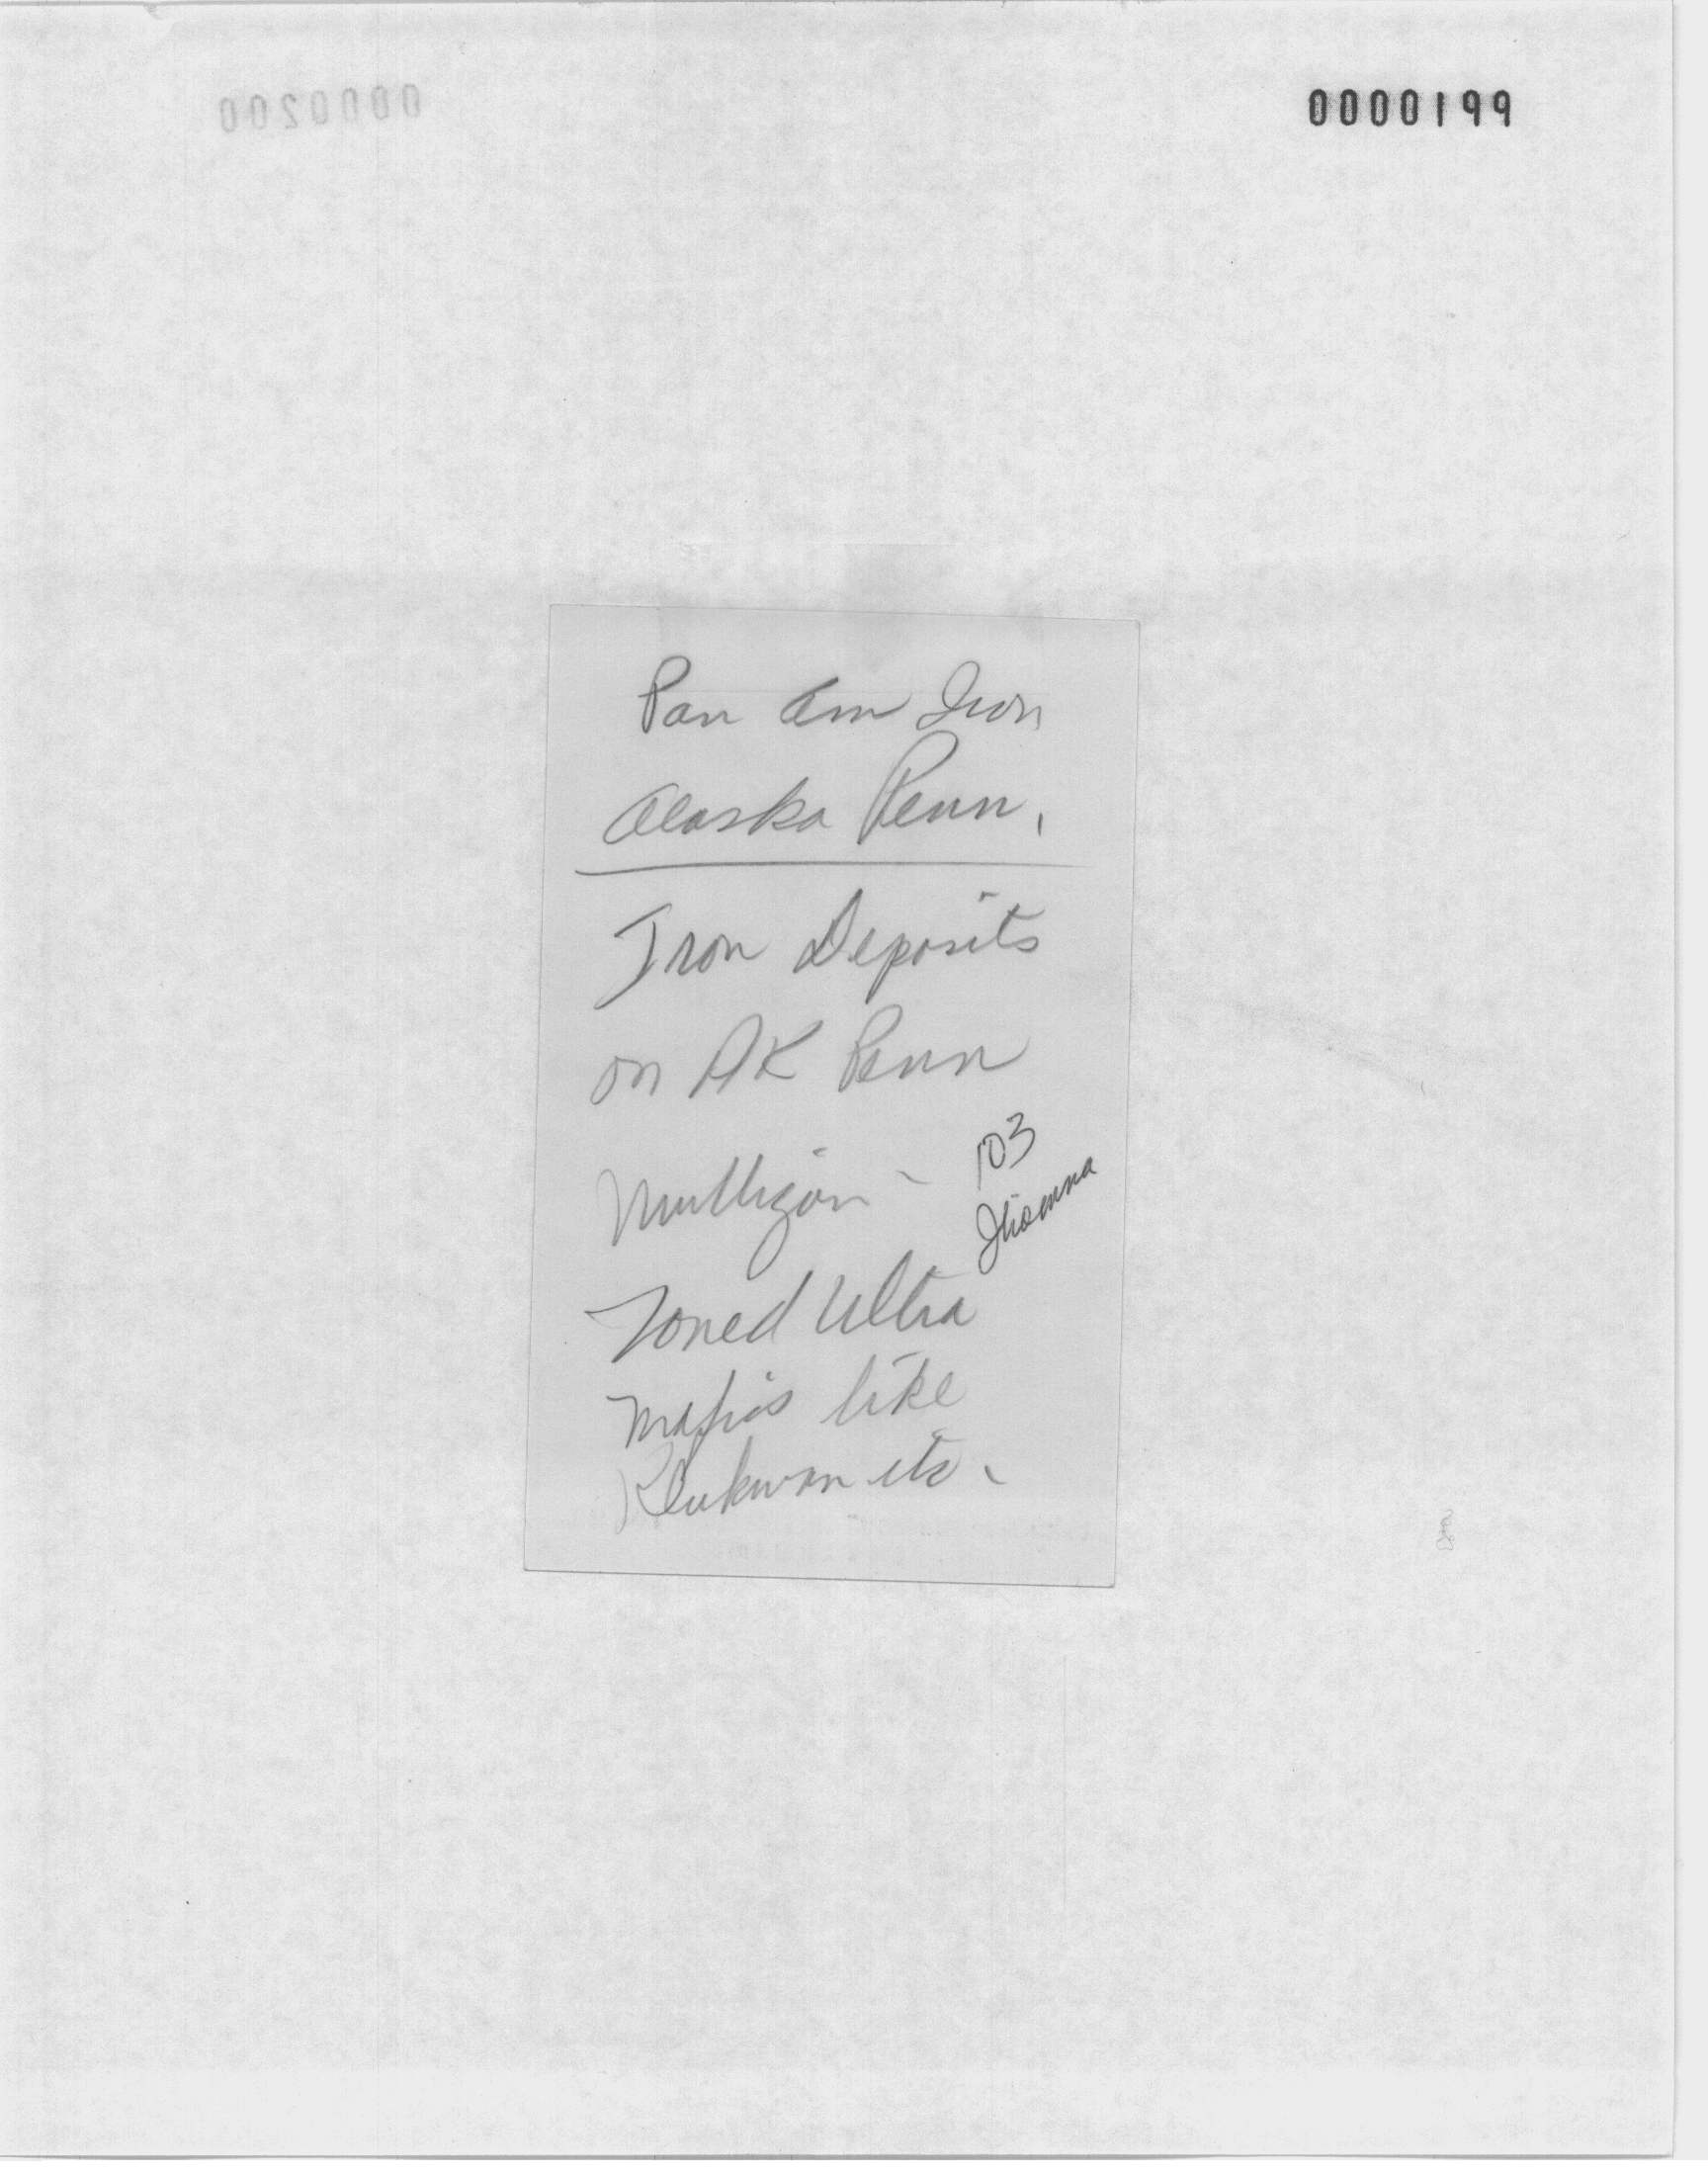 0000199
Pan Am Iron
Alaska Penn.
Iron Deposits
on AK Penn
Mulligan -
103
Iliamna
Zoned Ultra
Mafics like
Klukwan etc.